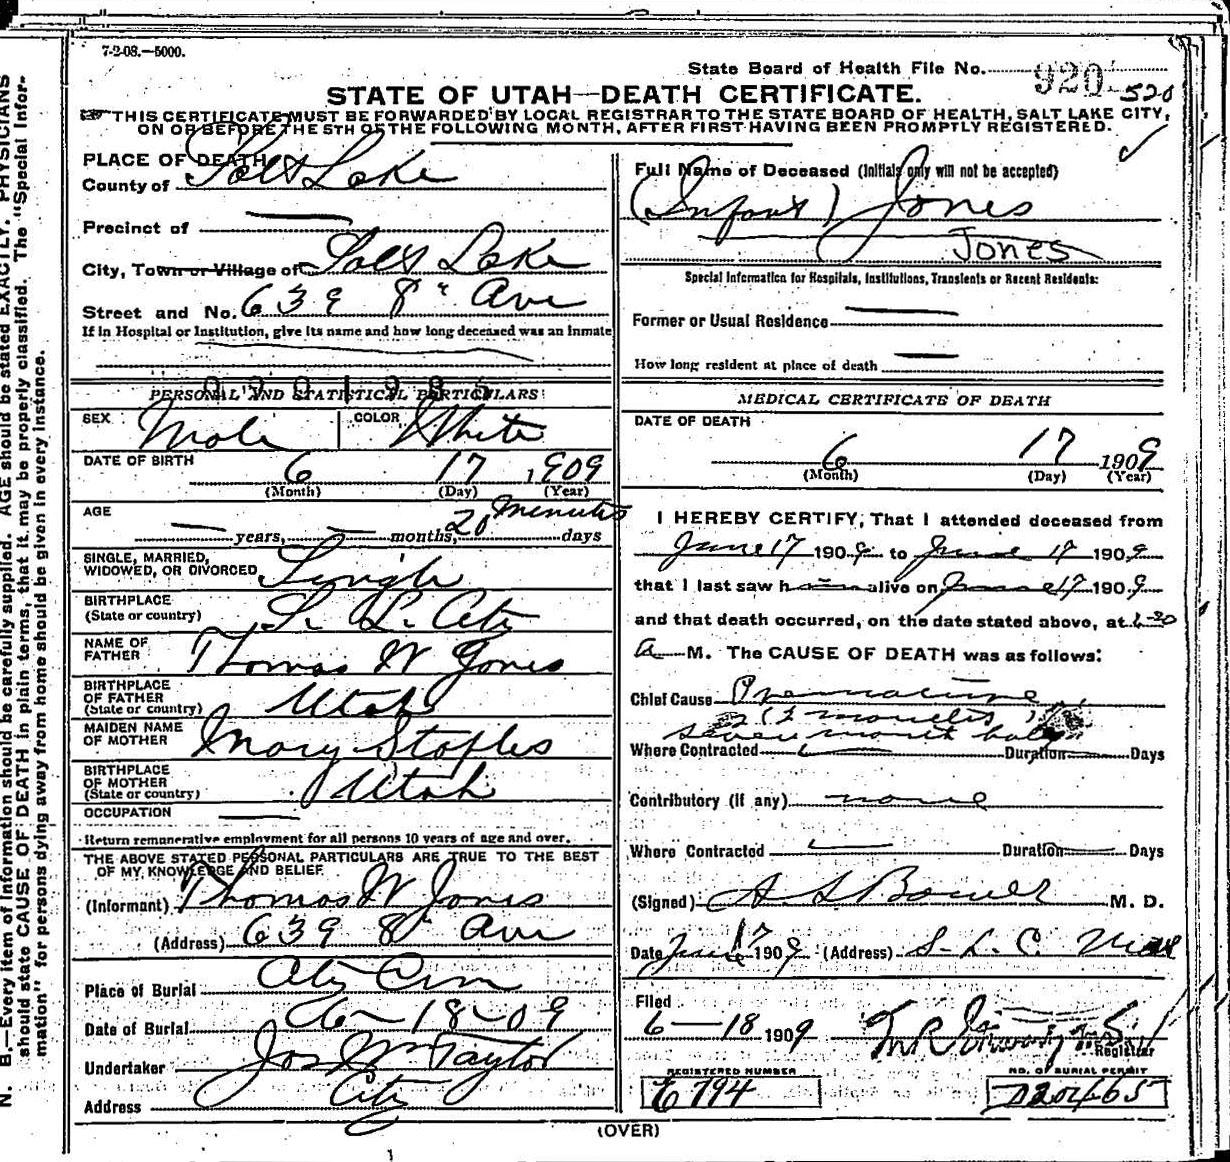 7-2-08.—5000.
State Board of Health File No. 920 520
STATE OF UTAH—DEATH CERTIFICATE.
THIS CERTIFICATE MUST BE FORWARDED BY LOCAL REGISTRAR TO THE STATE BOARD OF HEALTH, SALT LAKE CITY,
ON OR BEFORE THE 5TH OF THE FOLLOWING MONTH, AFTER FIRST HAVING BEEN PROMPTLY REGISTERED.
PLACE OF DEATH
County of Salt Lake
Precinct of
City, Town or Village of Salt Lake
Street and No. 639 8" Ave
If in Hospital or Institution, give its name and how long deceased was an inmate
0901985
PERSONAL AND STATISTICAL PARTICULARS
SEX Male COLOR White
DATE OF BIRTH 6 17 1909
(Month) (Day) (Year)
AGE
— years, — months, 20 minutes days
SINGLE, MARRIED,
WIDOWED, OR DIVORCED Single
BIRTHPLACE
(State or country) S. L. City
NAME OF
FATHER Thomas W Jones
BIRTHPLACE
OF FATHER
(State or country) Utah
MAIDEN NAME
OF MOTHER Mary Staples
BIRTHPLACE
OF MOTHER
(State or country) Utah
OCCUPATION
Return remunerative employment for all persons 10 years of age and over.
THE ABOVE STATED PERSONAL PARTICULARS ARE TRUE TO THE BEST
OF MY KNOWLEDGE AND BELIEF.
(Informant) Thomas W Jones
(Address) 639 8" Ave
Place of Burial City Cem
Date of Burial 6-18-09
Undertaker Jos Wm Taylor
Address City
Full Name of Deceased (Initials only will not be accepted)
(Infant) Jones
Jones
Special Information for Hospitals, Institutions, Transients or Recent Residents:
Former or Usual Residence
How long resident at place of death
MEDICAL CERTIFICATE OF DEATH
DATE OF DEATH
6 17 1909
(Month) (Day) (Year)
I HEREBY CERTIFY, That I attended deceased from
June 17 1909 to June 17 1909
that I last saw h alive on June 17 1909
and that death occurred, on the date stated above, at
a M. The CAUSE OF DEATH was as follows:
Chief Cause Premature
(7 months)
seven month baby
Where Contracted Duration Days
Contributory (if any) none
Where Contracted Duration Days
(Signed) A S Bower M. D.
Date June 17 1909 (Address) S. L. C.
Filed
6-18 1909
Registrar
REGISTERED NUMBER
E 794
NO. OF BURIAL PERMIT
D20465
(OVER)
N. B.—Every item of information should be carefully supplied. AGE should be stated EXACTLY. PHYSICIANS
should state CAUSE OF DEATH in plain terms, that it may be properly classified. The "Special Infor-
mation" for persons dying away from home should be given in every instance.